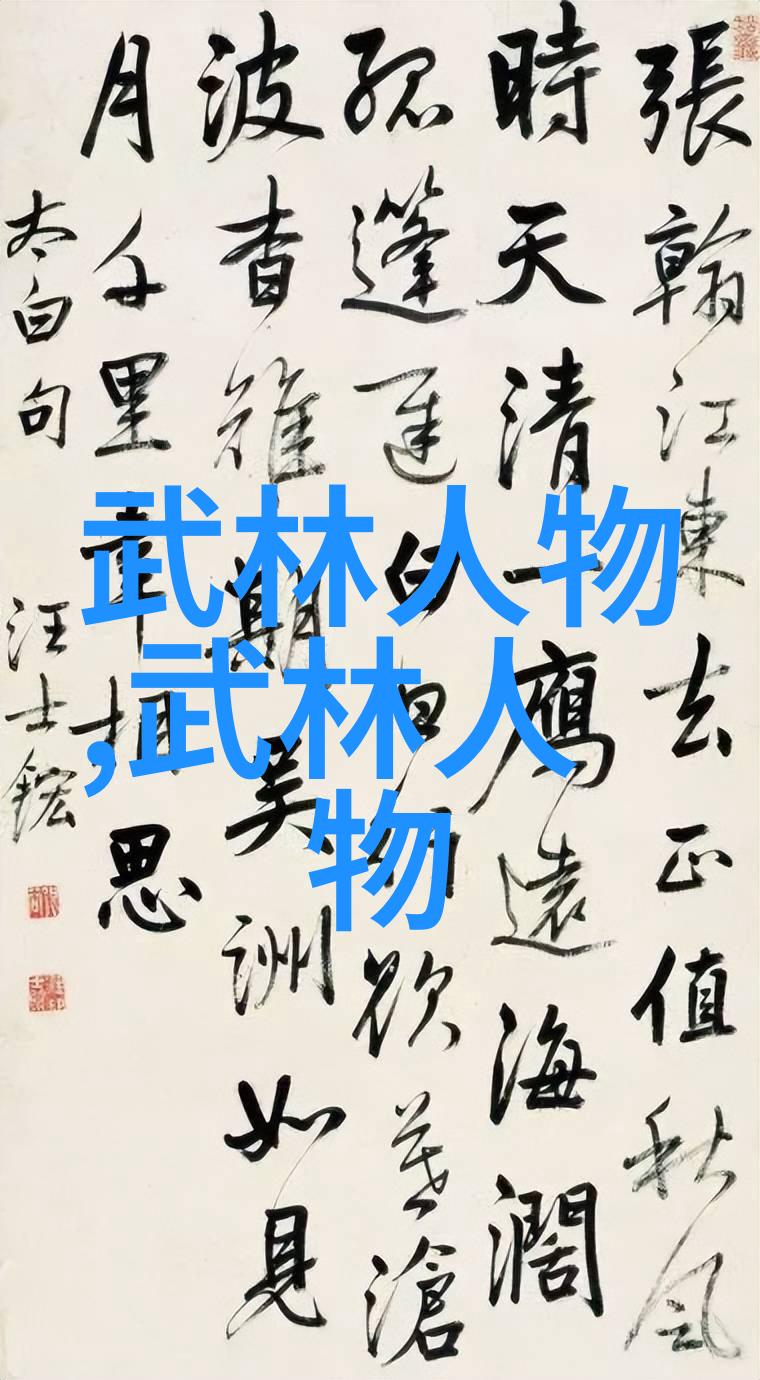 張翰江東去正值秋風
時天清一鴈遠海濶
孤篷遲白日行欲暮滄
波杳難期吳洲如見
月千里幸相思
太白句
汪士鋐
武林人物
,武林人
物